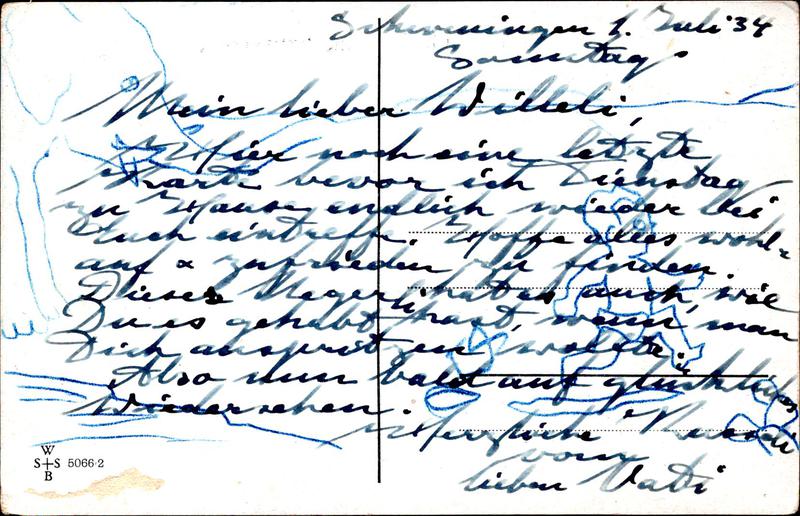 Scheveningen 1. Juli '34
Sonntag
Mein lieber Willeli,
Hier noch eine letzte
Karte bevor ich Dienstag
zu Hause endlich wieder bei
Euch eintreffe. Hoffe alles wohl-
auf & zufrieden zu finden.
Dieser Neger hat es auch, wie
Du es gehabt hast, wenn man
Dich anspritzen wollte.
Also nun bald auf glückliches
Wiedersehen.
Herzliche
vom
lieben Vati
W
S+S 5066-2
B